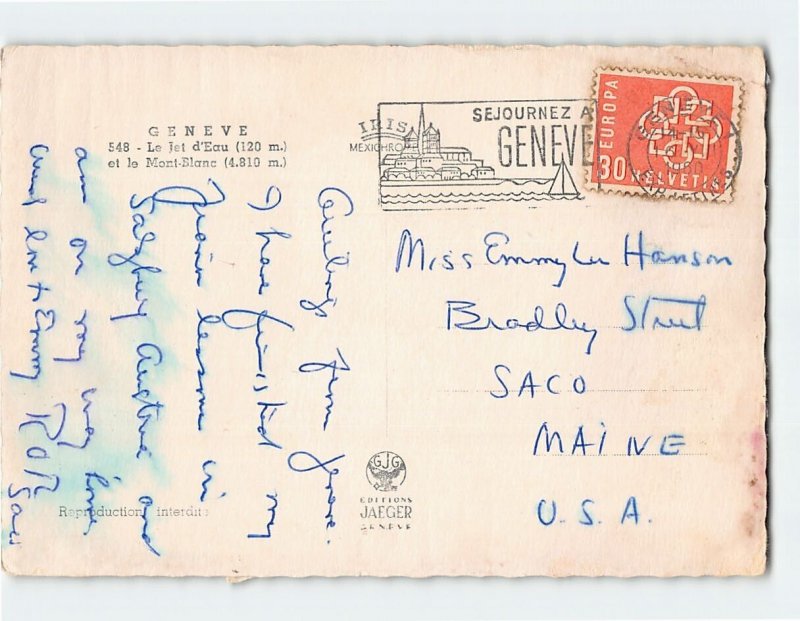 GENEVE
548 - Le Jet d'Eau (120 m.)
et le Mont-Blanc (4.810 m.)
IRIS
MEXICHROM
SEJOURNEZ A
GENEVE
EUROPA
30 HELVETIA
Miss Emmy Lu Hanson
Bradley Street
SACO
MAINE
U. S. A.
Greetings from Geneve.
I have finished my
lessons in
Salzburg Austria and
am on my way home
Emmy
GJG
EDITIONS
JAEGER
GENEVE
Reproduction interdite